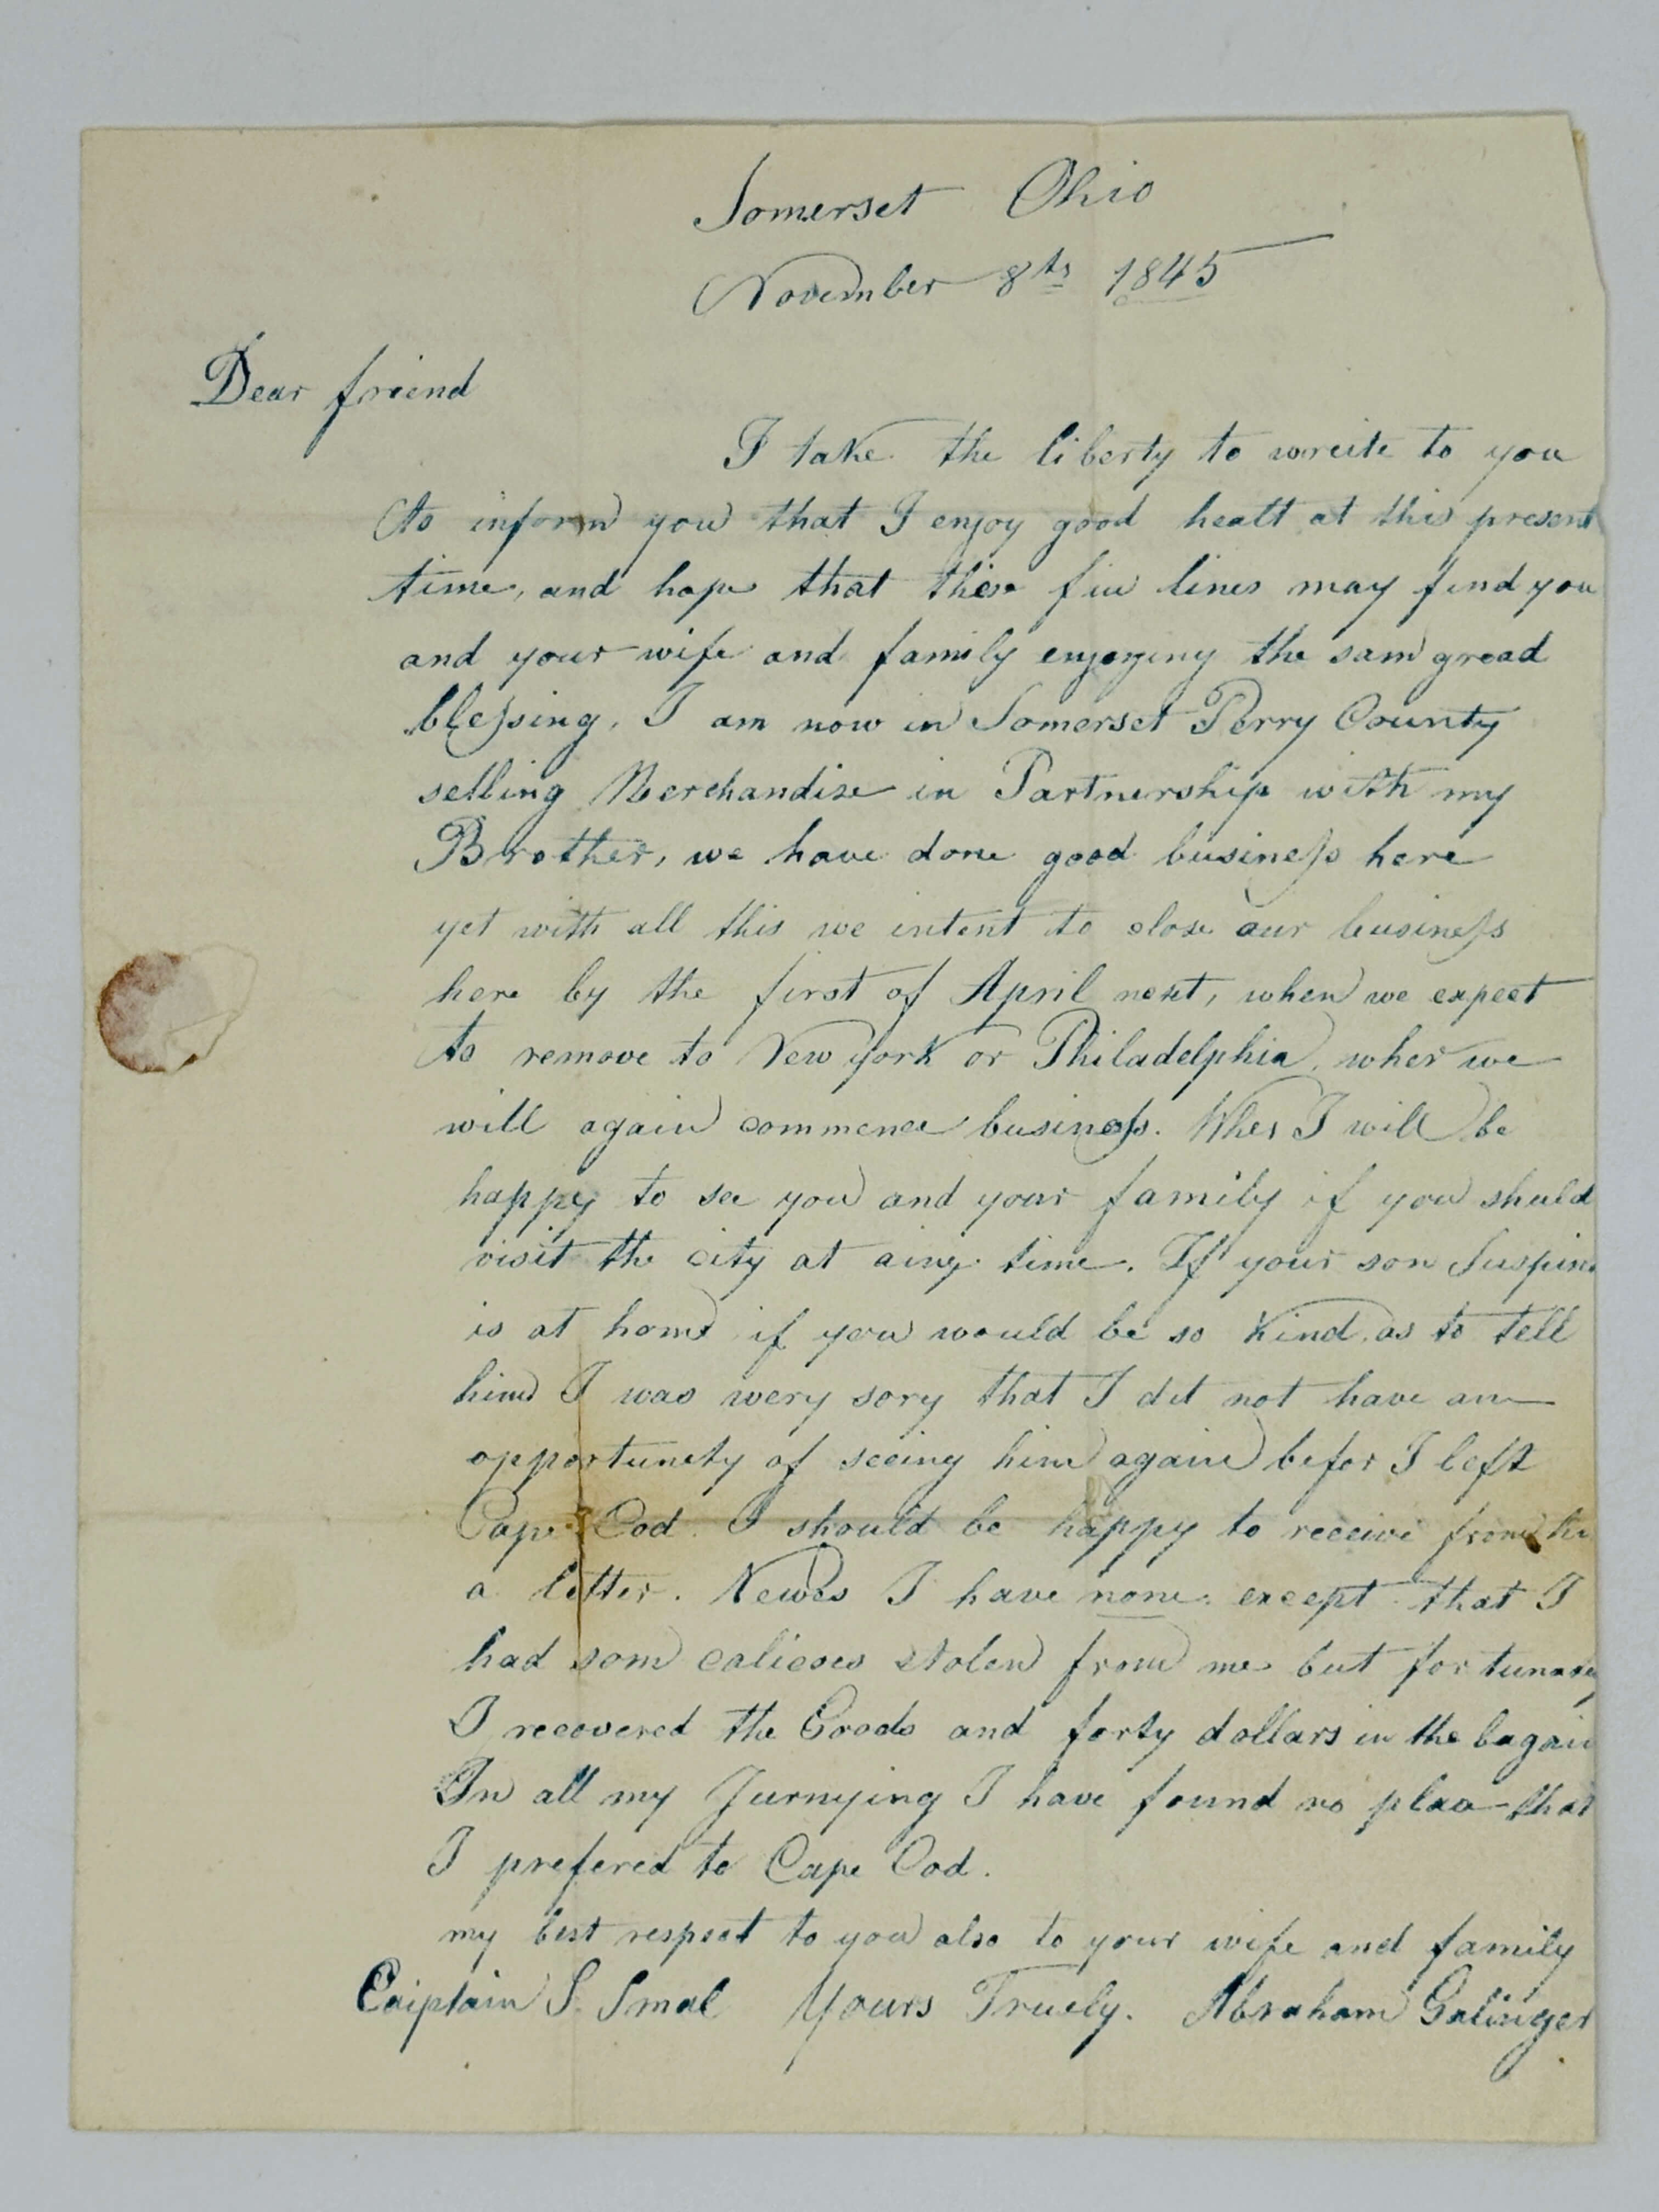 Somerset Ohio
November 8th 1845
Dear friend
I take the liberty to wreite to you
to inform you that I enjoy good healt at this present
time, and hope that these fiw lines may find you
and your wife and family enjoying the sam gread
blessing. I am now in Somerset Perry County
selling Merchandise in Partnership with my
Brother, we have done good business here
yet with all this we intent to close our business
here by the first of April next, when we expect
to remove to New york or Philadelphia, wher we
will again commence business. Wher I will be
happy to see you and your family if you should
visit the city at ainy time. If your son
is at home if you would be so kind as to tell
him I was wery sory that I dit not have an
opportunety of seeing him again befor I left
Cape Cod. I should be happy to receive from hi
a letter. Newes I have none except that I
had som calicoes stolen from me but fortunate
I recovered the Goods and forty dollars in the bagain
In all my Jurnying I have found no plac that
I prefered to Cape Cod.
my best respect to you also to your wife and family
Caiptain S. Smal Yours Truely. Abraham Galinger